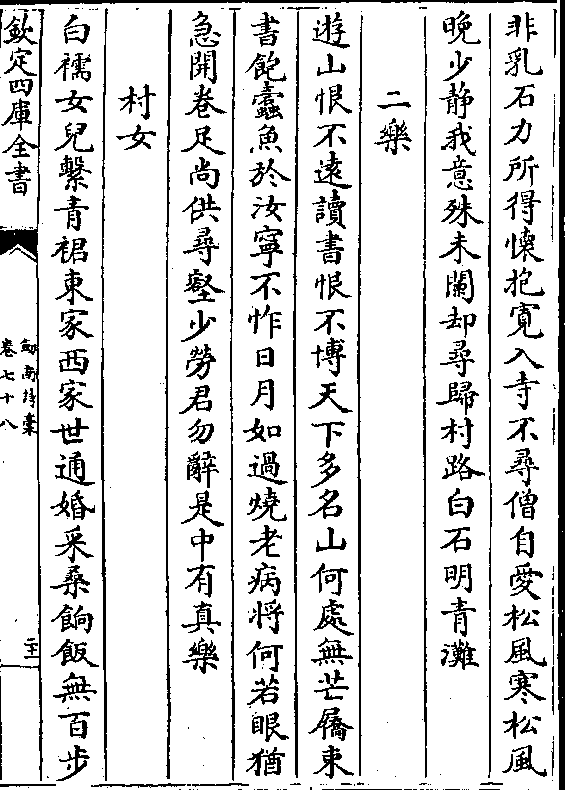 非乳石力所得懷抱寛入寺不尋僧自愛松風寒松風
晚少静我意殊未闌却尋歸村路白石明青灘
二樂
遊山恨不遠讀書恨不博天下多名山何處無芒屩東
書飽蠧魚於汝寧不怍日月如過燒老病將何若眼猶
急開卷足尚供尋壑少勞君勿辭是中有真樂
村女
白襦女兒繫青裙東家西家世通婚采桑餉飯無百步
欽定四庫全書
劒南詩稾
卷七十八
二十一